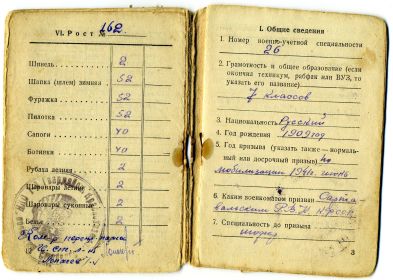 VI. Рост № 162
Шинель 2
Шапка (шлем) зимняя 52
Фуражка 52
Пилотка 52
Сапоги 40
Ботинки 40
Рубаха летняя 2
Шаровары летние 2
Шаровары суконные 2
Белье 2
I. Общие сведения
1. Номер военно-учетной специальности
26
2. Грамотность и общее образование (если
окончил техникум, рабфак или ВУЗ, то
указать его название)
7 классов
3. Национальность Русский
4. Год рождения 1909 год
5. Год призыва (указать также — нормаль-
ный или досрочный призыв) по
мобилизации 1941 г. июнь
6. Каким военкоматом призван
7. Специальность до призыва
3